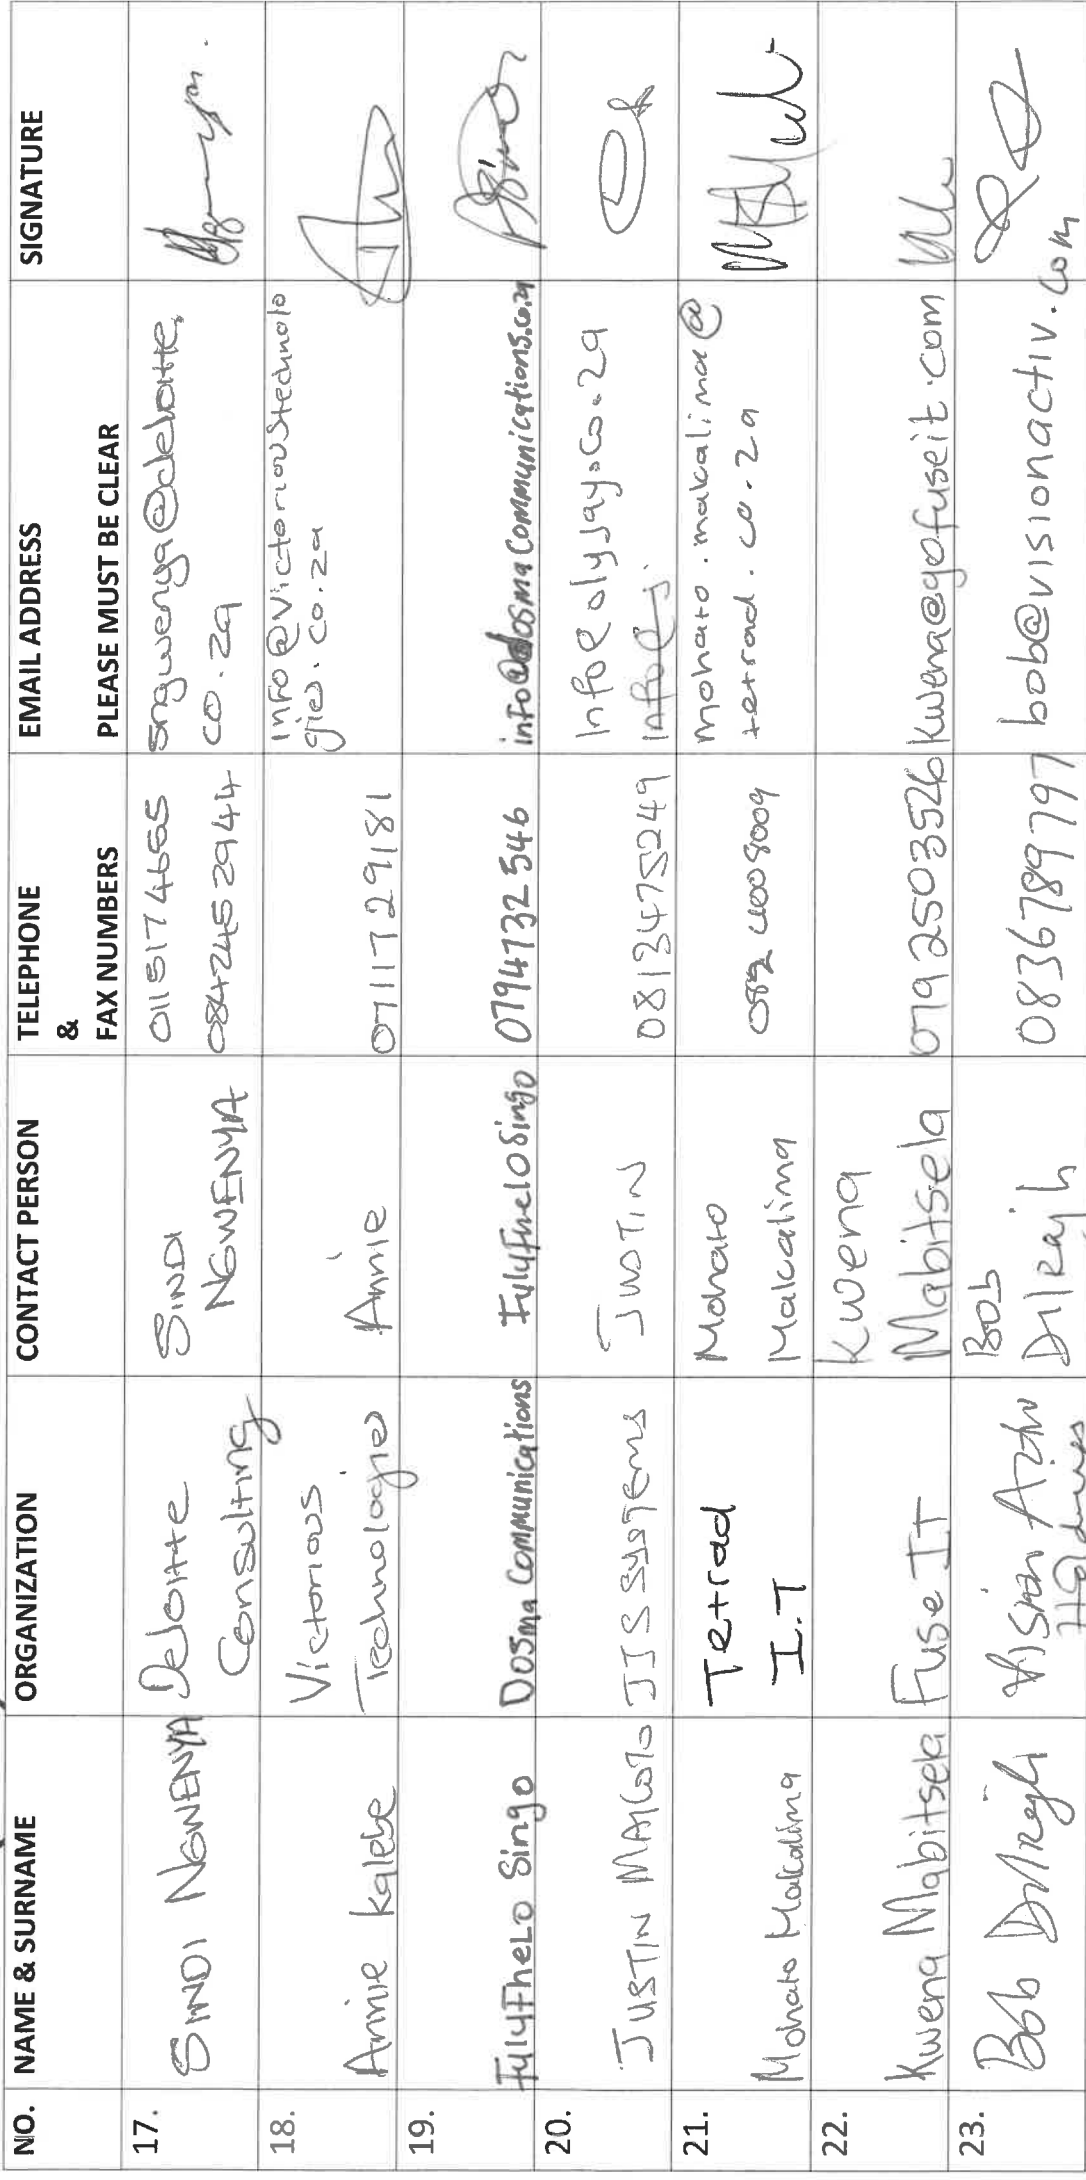 NO. NAME & SURNAME ORGANIZATION CONTACT PERSON TELEPHONE & FAX NUMBERS EMAIL ADDRESS PLEASE MUST BE CLEAR SIGNATURE
17. SINDI NGWENYA Deloitte Consulting SINDI NGWENYA 0115174655 0842452944 sngwenya@deloitte.co.za
18. Annie Kalebe Victorious Technologies Annie 0711729181 info@victorioustechnologies.co.za
19. FulufheLo Singo Dosma Communications FulufheloSingo 0794732546 info@dosmaCommunications.co.za
20. JUSTIN JJS SYSTEMS JUSTIN 0813475249 info@olyjay.co.za
21. Mohato Makalima Tetrad I.T Mohato Makalima mohato.makalima@tetrad.co.za
22. Kwena Mabitsela Fuse IT Kwena Mabitsela 0792503526 kwena@gofuseit.com
23. Bob Dilrajh Vision Activ Holdings Bob Dilrajh 0836789797 bob@visionactiv.com